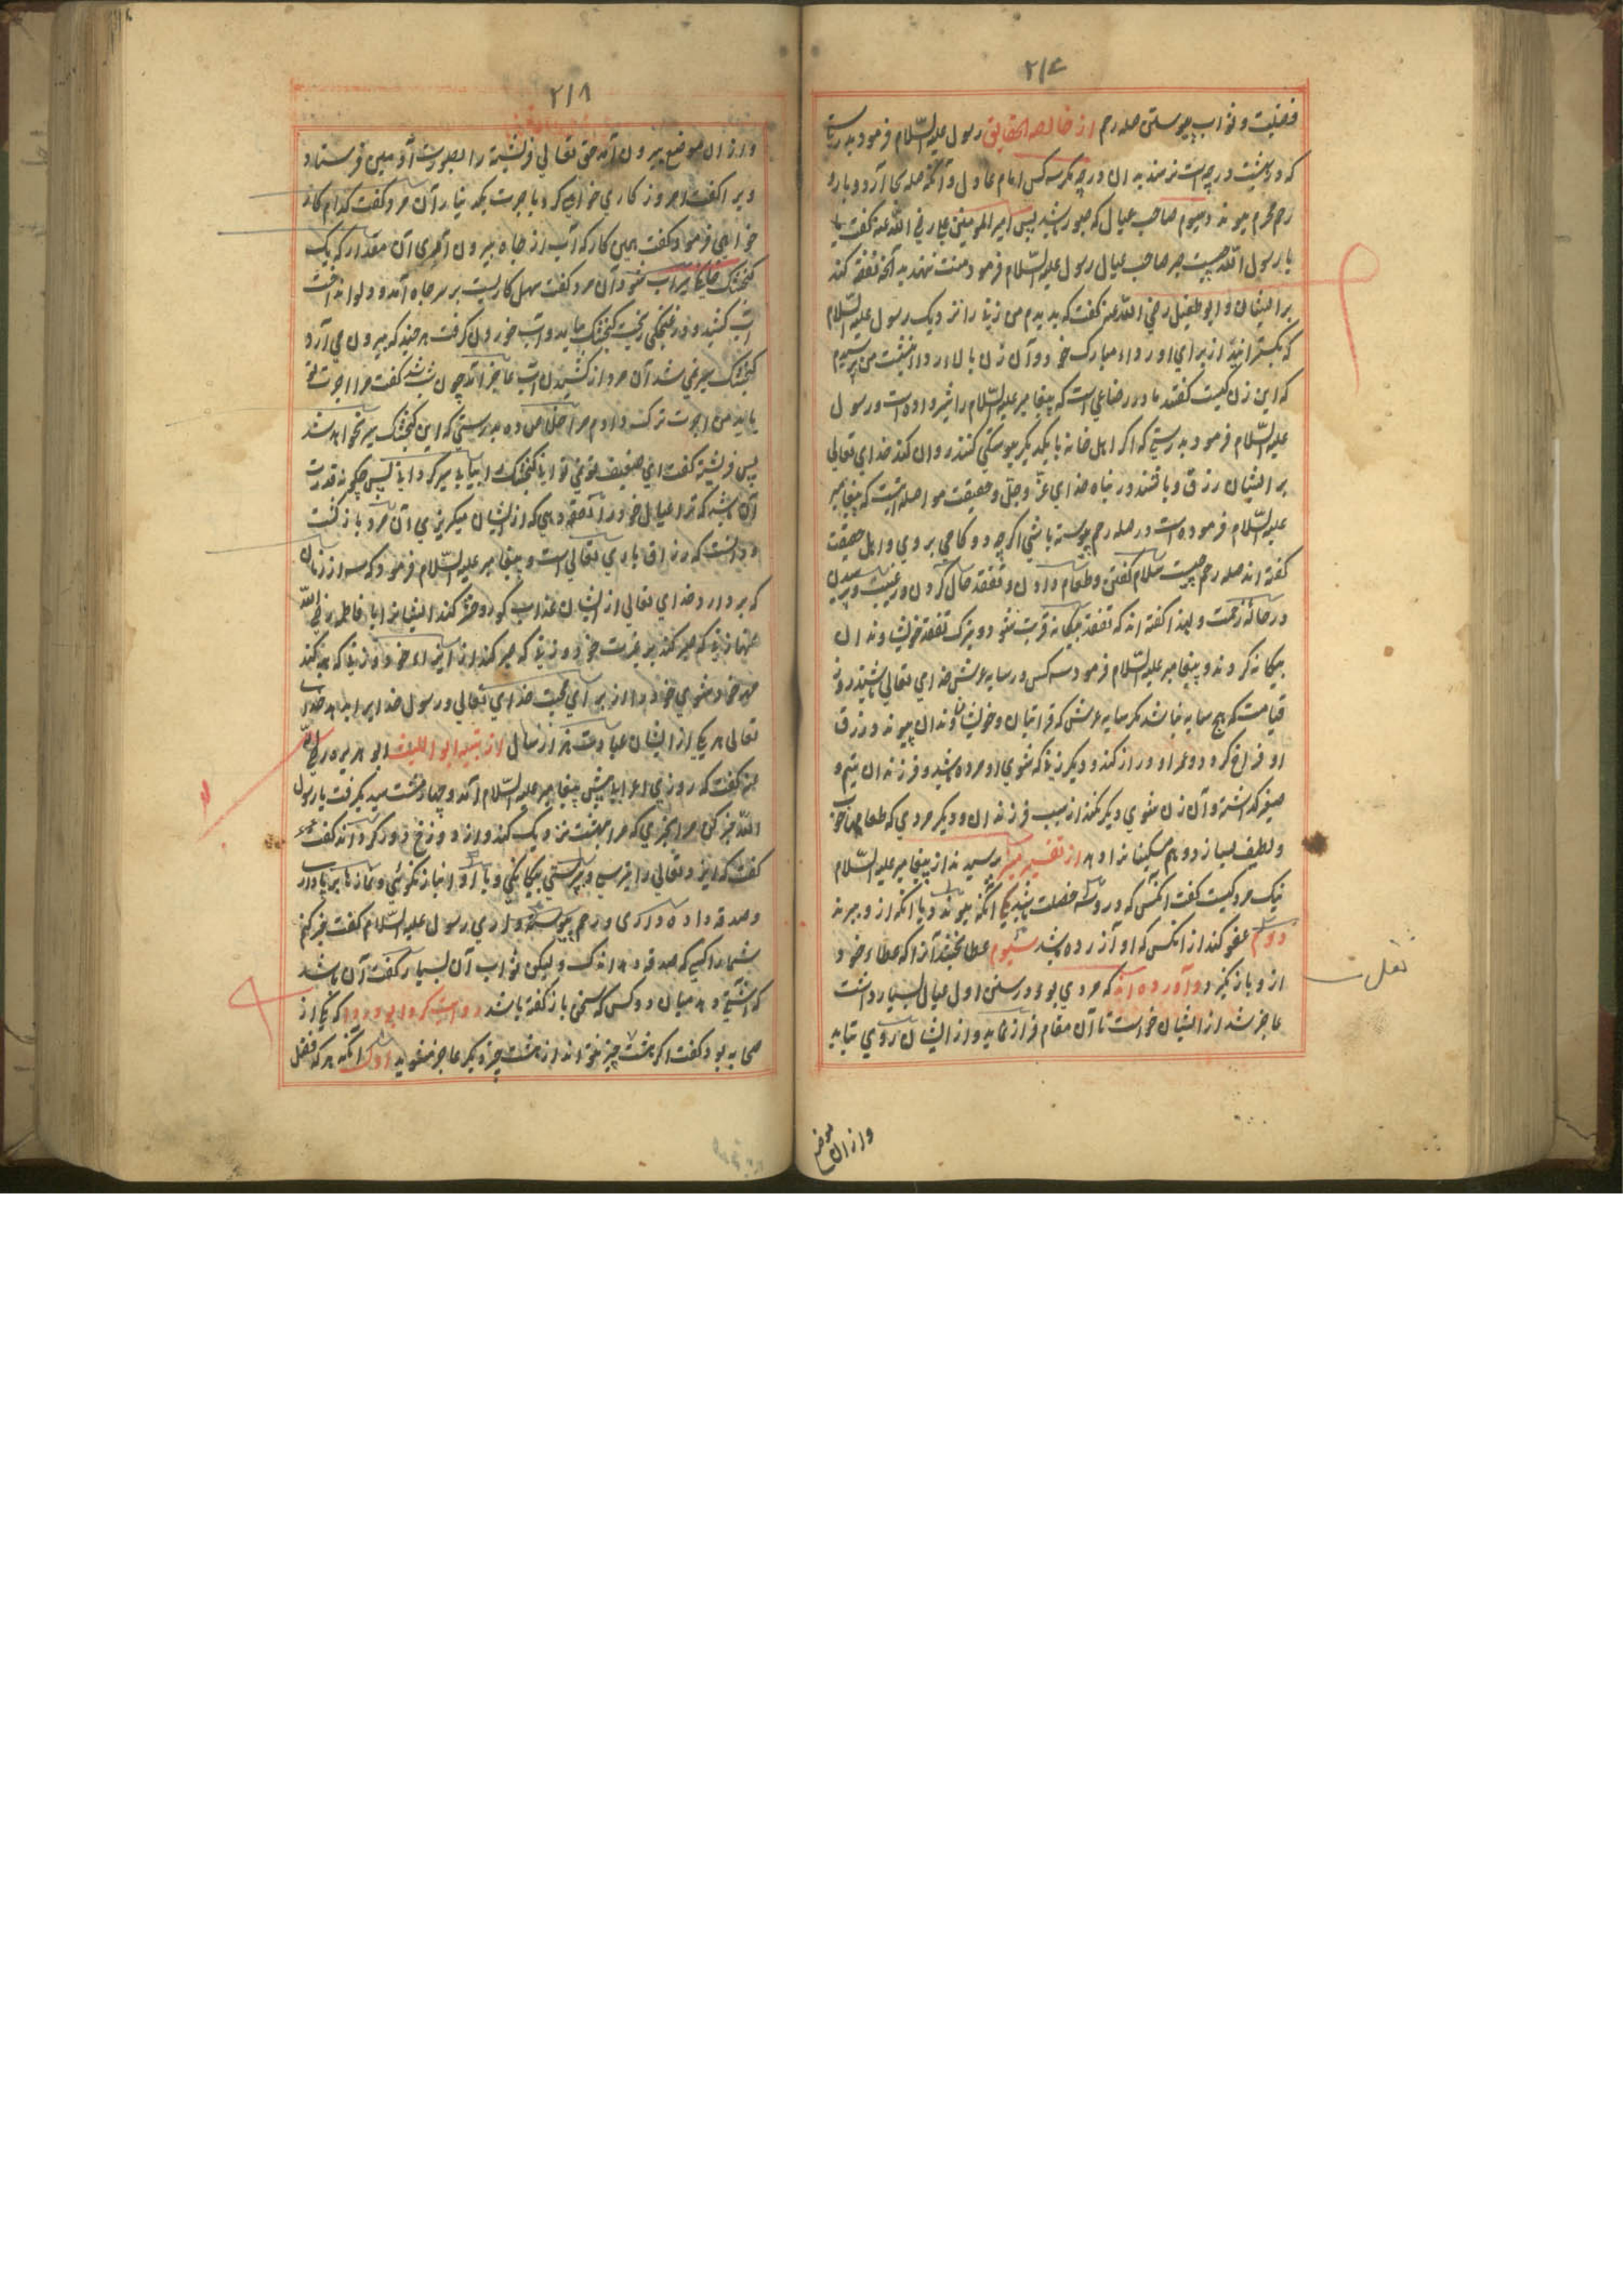 ۲۱۷
فضلیت و ثواب پیوستن صله رحم از خالصة الحقایق رسول علیه السّلام فرمود بدرستی
که در بهشت درجه است نرسند بدان درجه مگر سه کس امام عادل و آنکه صله بجا آرد و بارو
رحم محرم پیوند و سیوم صاحب عیال که صبور باشد پس امیر المومنین علی رضی الله عنه گفت
یا رسول الله چیست صبر صاحب عیال رسول علیه السّلام فرمود منت ننهد بدانچه نفقه کند
بر ایشان و ابو طفیل رضی الله عنه گفت که بدیدم من زنی را نزدیک رسول علیه السّلام
که بگسترانید از برای او رداء مبارک خود و آن زن بالاء ردا بنشست من پرسیدم
که این زن کیست گفتند مادر رضاعی است که پیغامبر علیه السّلام را شیر داده است و رسول
علیه السّلام فرمود بدرستی که اگر اهل خانه با یکدیگر پیوستگی کنند روان کند خدای تعالی
بر ایشان رزق و باشند در پناه خدای عزّ و جلّ و حقیقت مواصله آنست که پیغامبر
علیه السّلام فرموده است در صله رحم پیوسته باشی اگرچه دو گامی بروی و اهل حقیقت
گفته اند صله رحم چیست سلام گفتن و طعام دادن و تفقد حال کردن در غیبت و پرسیدن
در حالة زحمت و لهذا گفته اند که تفقد بیگانه قربت شود و بترک تفقد خویشاوندان
بیگانه کردند و پیغامبر علیه السّلام فرمود سه کس در سایه عرش خدای تعالی باشند روز
قیامت که هیچ سایه نباشد مگر سایه عرش که قرابتان و خویشاوندان پیوند و رزق
او فراخ گردد و عمر او دراز کند و دیگر زنی که شوی او مرده باشد و فرزندان یتیم و
صغیر گذاشته و آن زن شوی دیگر نکند از سبب فرزندان و دیگر مردی که طعامها خوب
و لطیف بسازد و هم مسکینان را دهد از تفسیر پرسیدند از پیغامبر علیه السّلام
نیک مرد کیست گفت آنکس که درو سه خصلت باشد یکی آنکه پیوندد با آنکه از و ببرند
دوم عفو کند از آنکس که او آزرده باشد سیوم عطا بخشد آنرا که عطاء خود
از و باز گیرد و آورده اند که مردی بود در سنین اول عیال بسیار داشت
عاجز شد از ایشان خواست تا آن مقام فراز نماید و از ایشان روی تابد
نقلست
و ازان موضع
۲۱۸
و ازان موضع بیرون آمد حق تعالی فرشته را بصورت آدمیین فرستاد
و برا گفت امروز کاری خواهی کرد باجرت یک دینار آن مرد گفت کدام کار
خواهی فرمود گفت همین کار که آب از چاه بیرون آهری آن مقدار که یک
کنجشک سیراب شود آن مرد گفت سهل کاریست بر سر چاه آمد و دلو انداخت
آب کشید و در غلکی ریخت کنجشک بیامد و آب خوردن گرفت هر چند که بیرون می آرد
کنجشک سیر نمی شد آن مرد از کشیدن آب عاجز آمد چون شب شد گفت مرا اجرت نمی
باید من اجرت ترک دادم مرا خلاص ده بدرستی که این کنجشک سیر نخواهد شد
پس فرشته گفت ای ضعیف تو نمی توانی کنجشک را بیابی سیر گردانی پس چگونه قدرت
آن باشد که ترا عیال خود را نفقه دهی که از ایشان میگریزی آن مرد بازگشت
و دانست که رزاق باری تعالی است و پیغامبر علیه السّلام فرمود که سه از زنان
که بردارد خدای تعالی از ایشان عذاب گور و حشر کند ایشانرا با فاطمه رضی الله
عنها زنی که صبر کند بر غربت خود و زنی که صبر کند از ایذاء خود و زنی که هبه کند
مهر خود شوی خود را از برای محبت خدای تعالی و رسول خدای را بدهد خدای
تعالی هر یکی از ایشان عبادت هزار سال از تنبیه ابو اللیث ابو هریره رضی الله
عنه گفت که روزی اعرابی پیش پیغامبر علیه السّلام آمد و چهار مشت میدیگرفت یا رسول
الله خبر کن مرا بچیزی که مرا ببهشت نزدیک کند و از دوزخ دور گرداند گفت
گفت که ایزد تعالی را بپرستی بیگانگی و با او انباز نگوئی و نمازها برپا دارد
و صدقه داده داری و رحم پیوسته داری رسول علیه السّلام گفت خبر کنم
شما را کسی که صدقه دهد اندک ولیکن ثواب آن بسیار گفت آن باشد
که آشتی دهد میان دو کس که سخن باز گفته باشد روایت کرد ابو دردا که یکی از
صحابه بود گفت اگر هشت چیز نتواند از هشت چیز دیگر عاجز نشوید اول آنکه هر که فضل